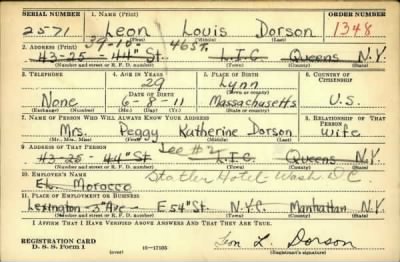 SERIAL NUMBER 1. NAME (Print) ORDER NUMBER
2571 Leon Louis Dorson 1348
(First) (Middle) (Last)
2. ADDRESS (Print) 39-10- 46 St.
43-25 - 44th St. L.I.C. Queens N.Y.
(Number and street or R. F. D. number) (Town) (County) (State)
3. TELEPHONE 4. AGE IN YEARS 5. PLACE OF BIRTH 6. COUNTRY OF CITIZENSHIP
29 Lynn
DATE OF BIRTH (Town or county)
None 6-8-11 Massachusetts U.S.
(Exchange) (Number) (Mo.) (Day) (Yr.) (State or country)
7. NAME OF PERSON WHO WILL ALWAYS KNOW YOUR ADDRESS 8. RELATIONSHIP OF THAT PERSON
Mrs. Peggy Katherine Dorson Wife
(Mr., Mrs., Miss) (First) (Middle) (Last)
9. ADDRESS OF THAT PERSON See #2
43-25 - 44th St L.I.C. Queens N.Y.
(Number and street or R. F. D. number) (Town) (County) (State)
10. EMPLOYER'S NAME Statler Hotel Wash DC
El Morocco
11. PLACE OF EMPLOYMENT OR BUSINESS
Lexington - 3rd Ave - E 54th St. N.Y.C. Manhattan N.Y.
(Number and street or R. F. D. number) (Town) (County) (State)
I AFFIRM THAT I HAVE VERIFIED ABOVE ANSWERS AND THAT THEY ARE TRUE.
REGISTRATION CARD
D. S. S. Form 1 (over) 16-17105 Leon L Dorson
(Registrant's signature)